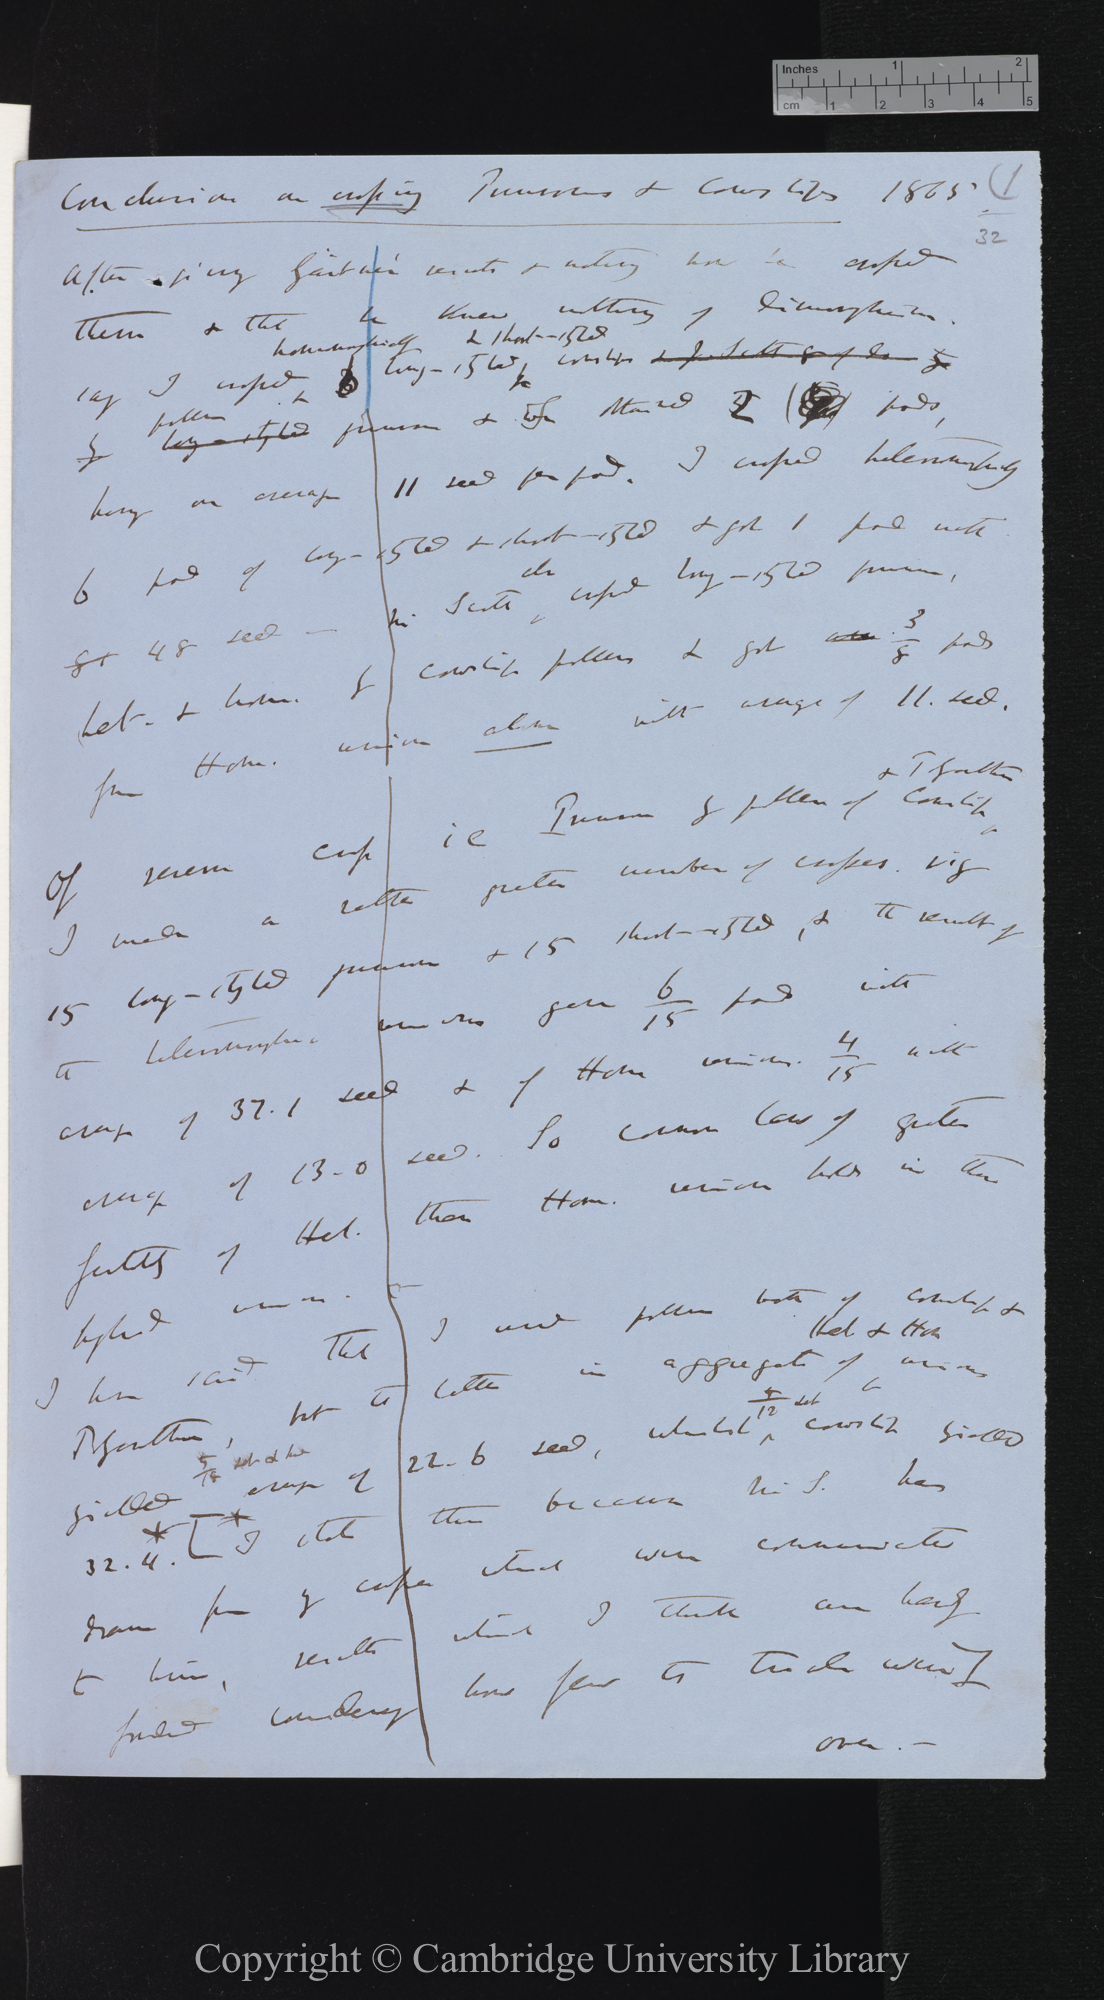 Inches 1 2
cm 1 2 3 4 5
Conclusion on crossing Primroses & Cowslips 1865
1
32
After giving Gärtner's results & noting how he crossed
them & that he knew nothing of Dimorphism.
homomorphically & short-styled
say I crossed 8 long-styled cowslips
by pollen & primrose & obtained 2 pods,
having on average 11 seed per pod. I crossed heteromorphically
6 pod of long-styled & short-styled & got 1 pod with
48 seed — Mr Scott also crossed long-styled primrose,
het. & hom. by cowslip pollen & got 3/8 pods
from Hom. union alone with average of 11. seed.
Of reverse cross ie Primrose by pollen of Cowslip & P Goulthea
I made a rather greater number of crosses. viz
15 long-styled primrose & 15 short-styled, & the result of
the heteromorphic unions gave 6/15 pod with
average of 37.1 seed & of Hom unions. 4/15 with
average of 13.0 seed. So common law of greater
fertility of Het. than Hom. union holds in these
hybrid unions.
I have said that I used pollen both of cowslip &
but the latter in aggregate of Het & Hom unions
yielded 5/18 average of 22.6 seed, whilst 5/12 cowslip yielded
32.4. * [ * I state this because Mr S. has
drawn from my crosses which were communicated
to him, results which I think are hardly
founded considering how few the trials were]
over. —
Copyright © Cambridge University Library